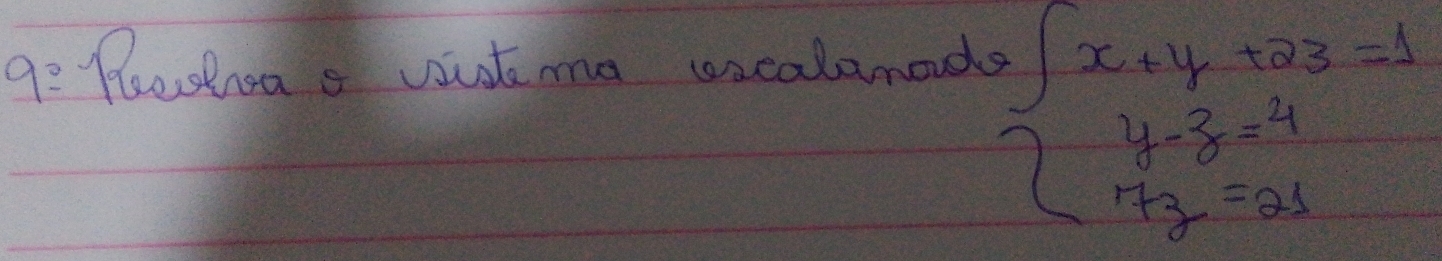 9º Resolva o sistema escalonado { x + y + 2z = 1
y - z = 4
7z = 21